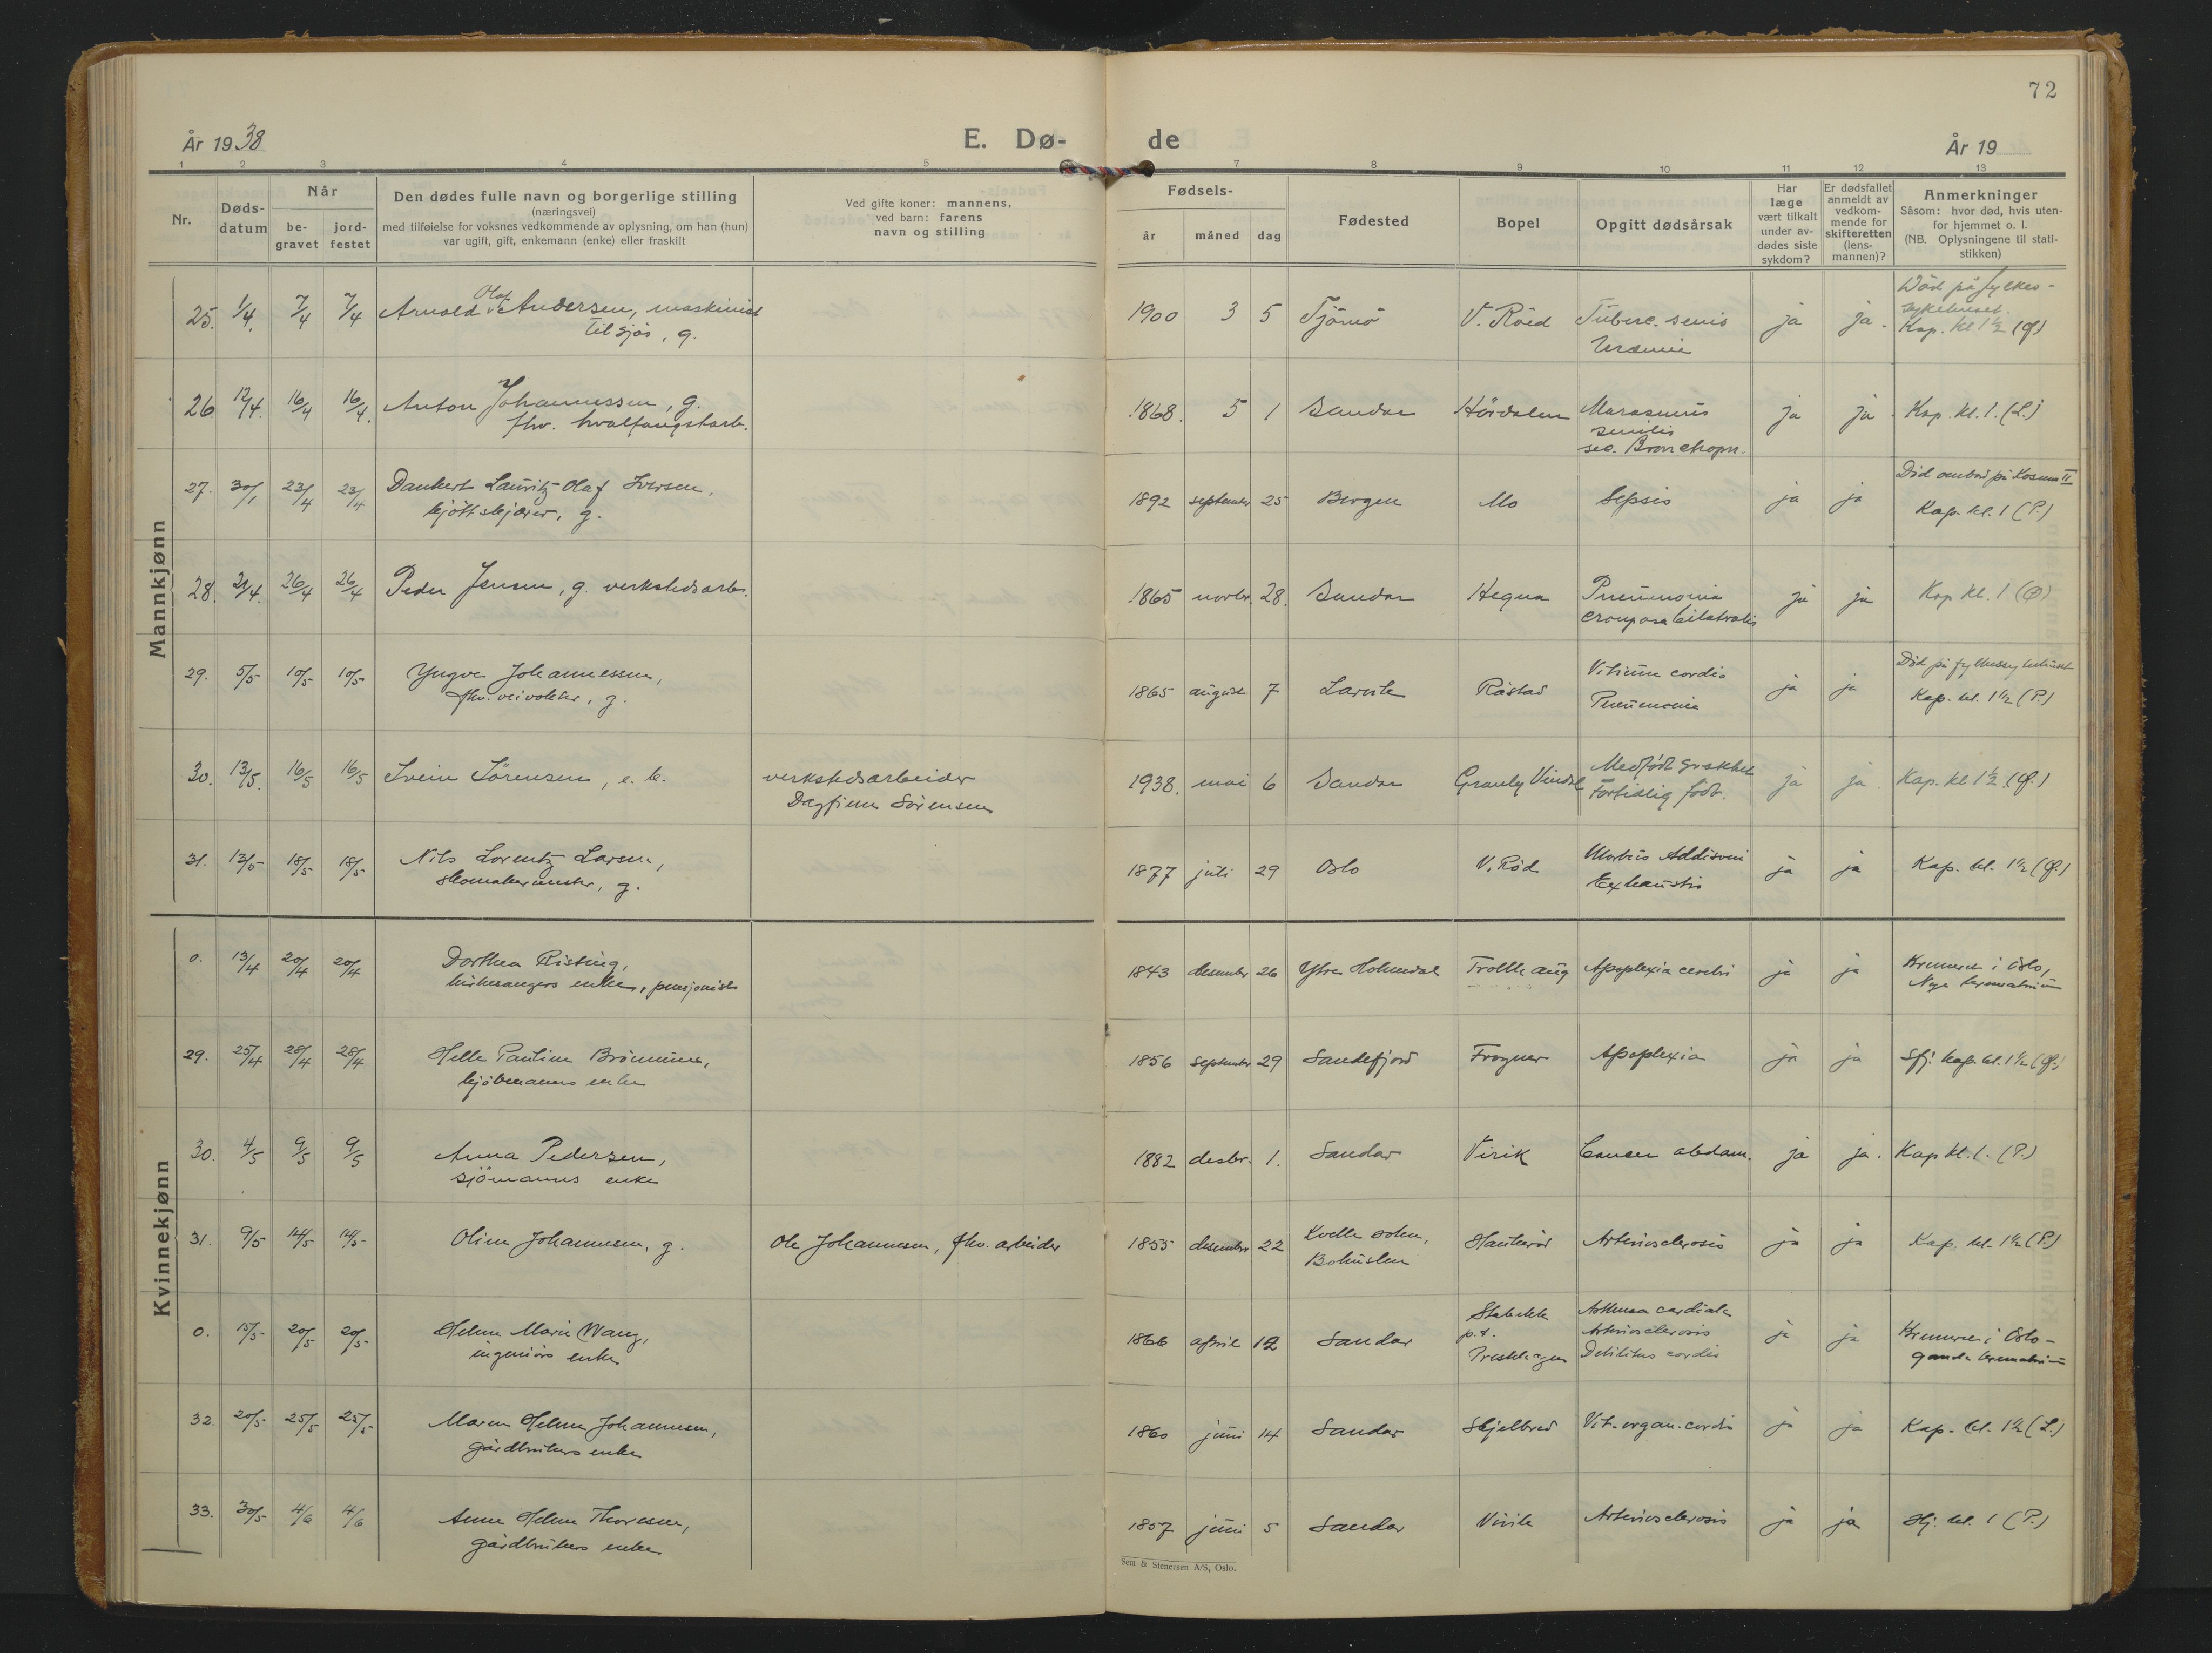 72
År 1938
E. Dø-
de
År 19
1 2 3 4 5 7 8 9 10 11 12 13
Nr.
Døds-
datum
Når
be-
gravet
jord-
festet
Den dødes fulle navn og borgerlige stilling
(næringsvei)
med tilføielse for voksnes vedkommende av oplysning, om han (hun)
var ugift, gift, enkemann (enke) eller fraskilt
Ved gifte koner: mannens,
ved barn: farens
navn og stilling
Fødsels-
år måned dag
Fødested
Bopel
Opgitt dødsårsak
Har
læge
vært tilkalt
under av-
dødes siste
sykdom?
Er dødsfallet
anmeldt av
vedkom-
mende for
skifteretten
(lens-
mannen)?
Anmerkninger
Såsom: hvor død, hvis uten-
for hjemmet o. l.
(NB. Oplysningene til stati-
stikken)
Mannkjønn
25. 1/4. 7/4 7/4 Arnold Olaf Andersen, maskinist
til sjøs, g.
1900 3 5 Tjömö V. Röed Tuberc. senis
Uræmie
ja ja. Död på fylkes-
sykehuset.
Kap. kl 1 1/2 (Q)
26. 12/4. 16/4 16/4. Anton Johannessen, g.
fhv. hvalfangstarb.
1868. 5 1 Sandar Hövdalen Marasmus
senilis
sec. Bronchopn.
ja ja. Kap. kl. 1. (L.)
27. 30/1 23/4 23/4 Dankert Lauritz Olaf Iversen,
kjöttskjærer, g.
1892 september 25 Bergen Mo Sepsis ja ja Död ombord på Kosmos II
Kap. kl. 1 (P.)
28. 21/4. 26/4 26/4 Peder Jensen, g. verkstedsarb.
1865 novbr. 28. Sandar Hegna Pneumonia
crouposa bilatralis
ja ja Kap kl. 1 (Q)
29. 5/5 10/5 10/5 Yngve Johannessen,
fhv. veivokter, g.
1865 august 7 Larvik Råstad Vitium cordis
Pneumonia
ja ja Död på fylkessykehuset
Kap. kl. 1 1/2 (P.)
30. 13/5. 16/5 16/5 Svein Sörensen, e. b.
verkstedsarbeider
Dagfinn Sörensen
1938. mai 6 Sandar Granly Vindal Medfödt svakhet
Fortidlig födt.
ja ja. Kap. kl 1 1/2. (Q.)
31. 13/5 18/5 18/5 Nils Lorentz Larsen,
skomakermester, g.
1877 juli 29 Oslo V. Röd Morbus Addisoni
Exhaustio
ja ja Kap. kl. 1 1/2 (Q.)
Kvinnekjønn
0. 13/4 20/4 20/4 Dorthea Risting,
kirkesangers enke, pensjonist
1843 desember 26 Ytre Holmedal Trollhaug Apoplexia cerebri ja ja Kremeret i Oslo,
Nye krematorium
29. 25/4 28/4 28/4 Helle Pauline Brömmus,
kjöbmanns enke
1856 september 29 Sandefjord Frogner Apoplexia ja ja Sfj. kap. kl. 1 1/2 (Q.)
30. 4/5 9/5 9/5 Anna Pedersen,
sjömanns enke
1882 desbr. 1. Sandar Virik Cancer abdom. ja ja. Kap kl. 1. (P.)
31. 9/5 14/5 14/5 Oline Johannesen, g. Ole Johannesen, fhv. arbeider
1855 desember 22 Kville sokn,
Bohuslen
Haukeröd Arteriosclerosis ja ja Kap. kl. 1 1/2 (P.)
0. 15/5 20/5 20/5 Helene Marie Wang,
ingeniörs enke
1866 april 12 Sandar Stabekk
p. t.
Presthagen
Asthma cardiale
Arteriosclerosis
Debilitas cordis
ja ja Kremeret i Oslo-
gamle krematorium
32. 20/5 25/5 25/5 Maren Helene Johannesen,
gårdbrukers enke
1860 juni 14 Sandar Skjelbred Vit. organ. cordis ja ja Kap. kl. 1 1/2 (L.)
33. 30/5 4/6 4/6 Anne Helene Thoresen,
gårdbrukers enke
1857 juni 5 Sandar Virik Arteriosclerosis ja ja Hj. kl. 1 (P.)
Sem & Stenersen A/S, Oslo.